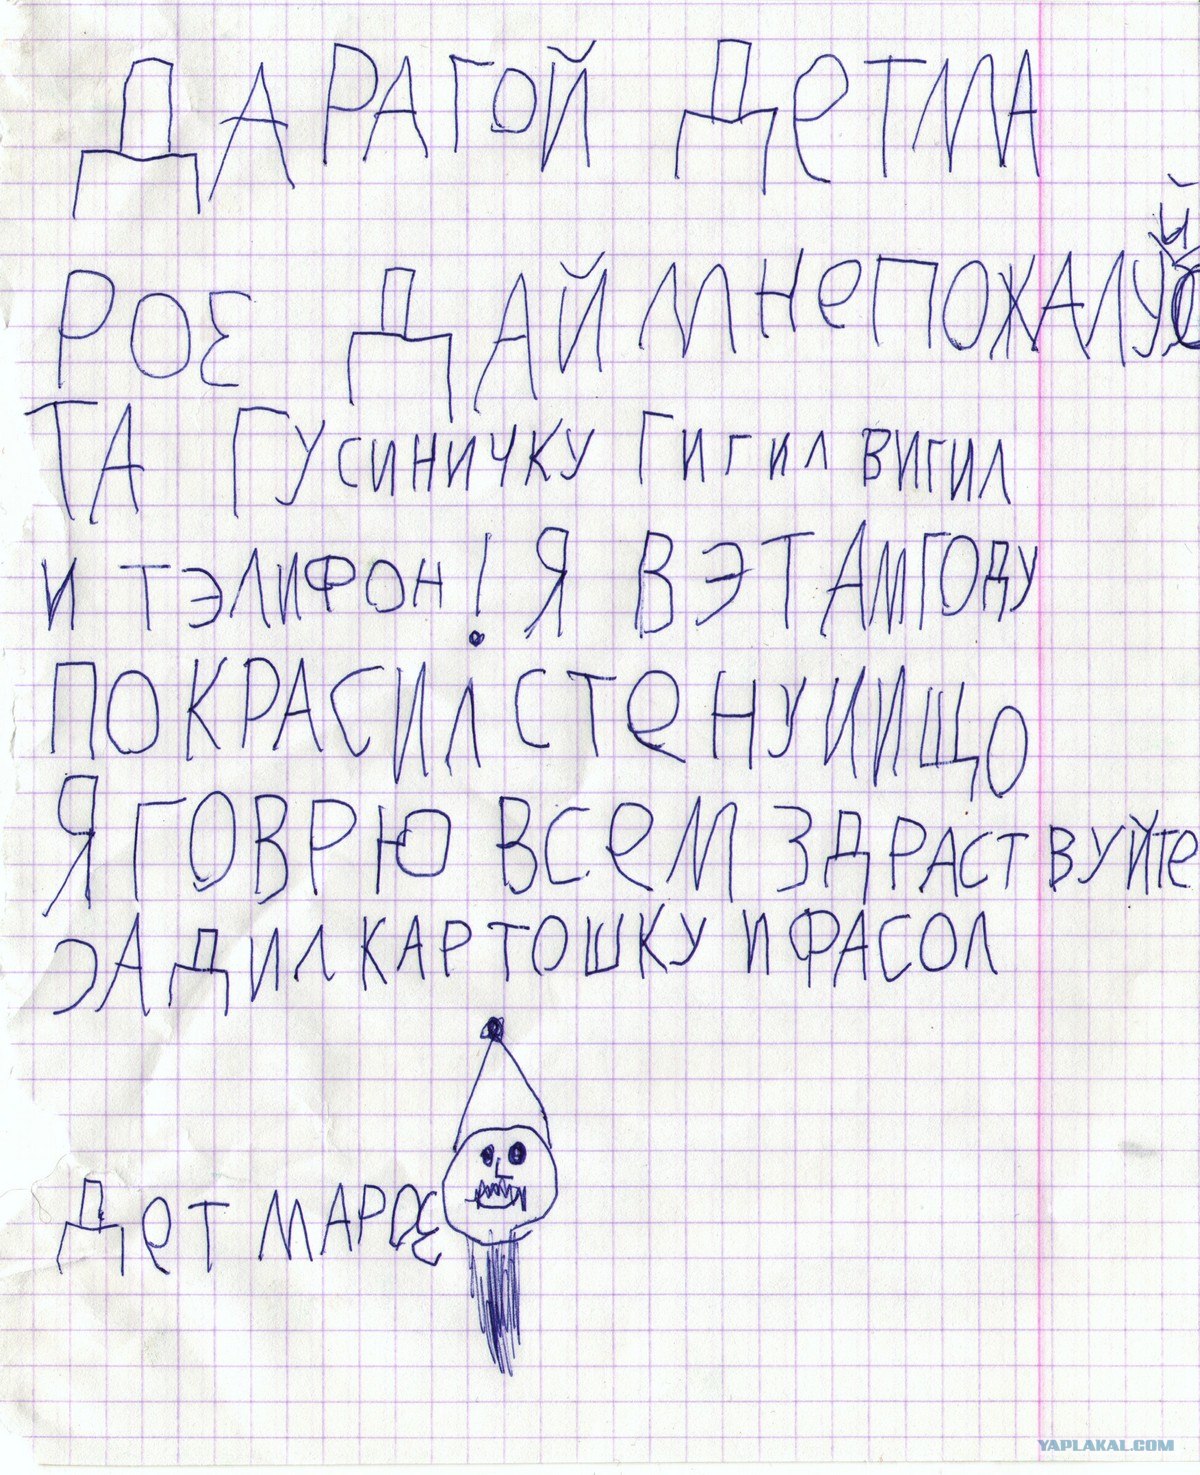 ДАРАГОЙ ДЕТМА
РОЕ ДАЙ МНЕПОЖАЛУЙ
ТА ГУСИНИЧКУ ГИГИЛ ВИГИЛ
И ТЭЛИФОН! Я ВЭТАМГОДУ
ПОКРАСИЛ СТЕНУИИЩО
Я ГОВРЮ ВСЕМ ЗДРАСТВУЙТЕ
ЭАДИЛ КАРТОШКУ И ФАСОЛ
ДЕТ МАРОЕ
YAPLAKAL.COM